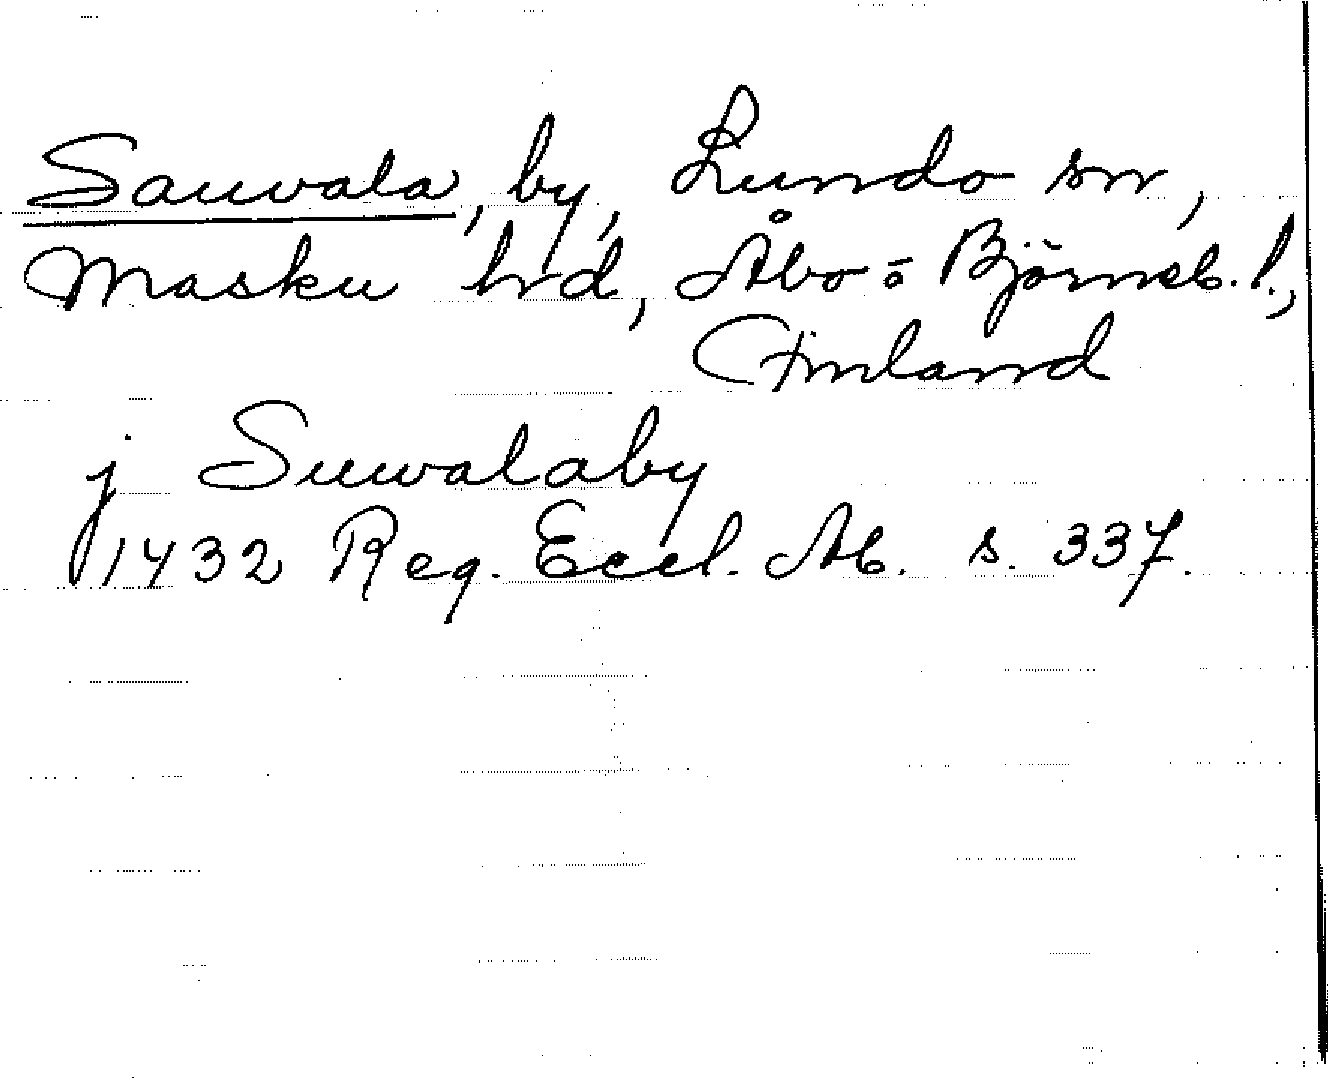 Sauvala, by, Lundo sn,
Masku hd, Åbo o Björneb. l.,
Finland
j Suwalaby
1432 Reg. Eccl. Ab. s. 337.